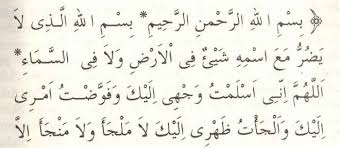 ﴿ بِسْمِ اللهِ الرَّحْمٰنِ الرَّحِيْمِ * بِسْمِ اللهِ الَّذِى لاَ
يَضُرُّ مَعَ اسْمِهِ شَيْئٌ فِى اْلاَرْضِ وَلاَ فِى السَّمَاءِ *
اَللّٰهُمَّ اِنِّى اَسْلَمْتُ وَجْهِىَ اِلَيْكَ وَفَوَّضْتُ اَمْرِى
اِلَيْكَ وَاَلْجَأْتُ ظَهْرِى اِلَيْكَ لاَ مَلْجَأَ وَلاَ مَنْجَأَ اِلاَّ